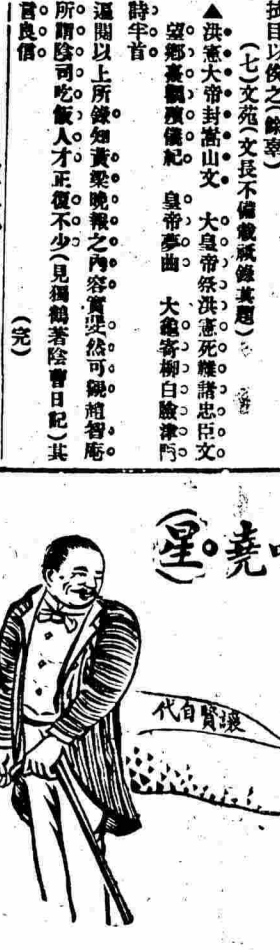 技目以俟之(餘幸)
(七)文苑(文長不備載祇錄其題)
▲洪憲大帝封嵩山文　大皇帝祭洪憲死難諸忠臣文
望鄉臺觀殯儀紀　皇帝夢曲　大龜寄柳白臉津門
詩半首
逼閱以上所錄知黃梁晚報之內容實斐然可觀趙智庵
所謂陰司吃飯人才正復不少(見獨鶴著陰曹日記)其
言良信
(完)
堯
(星)
讓賢自代